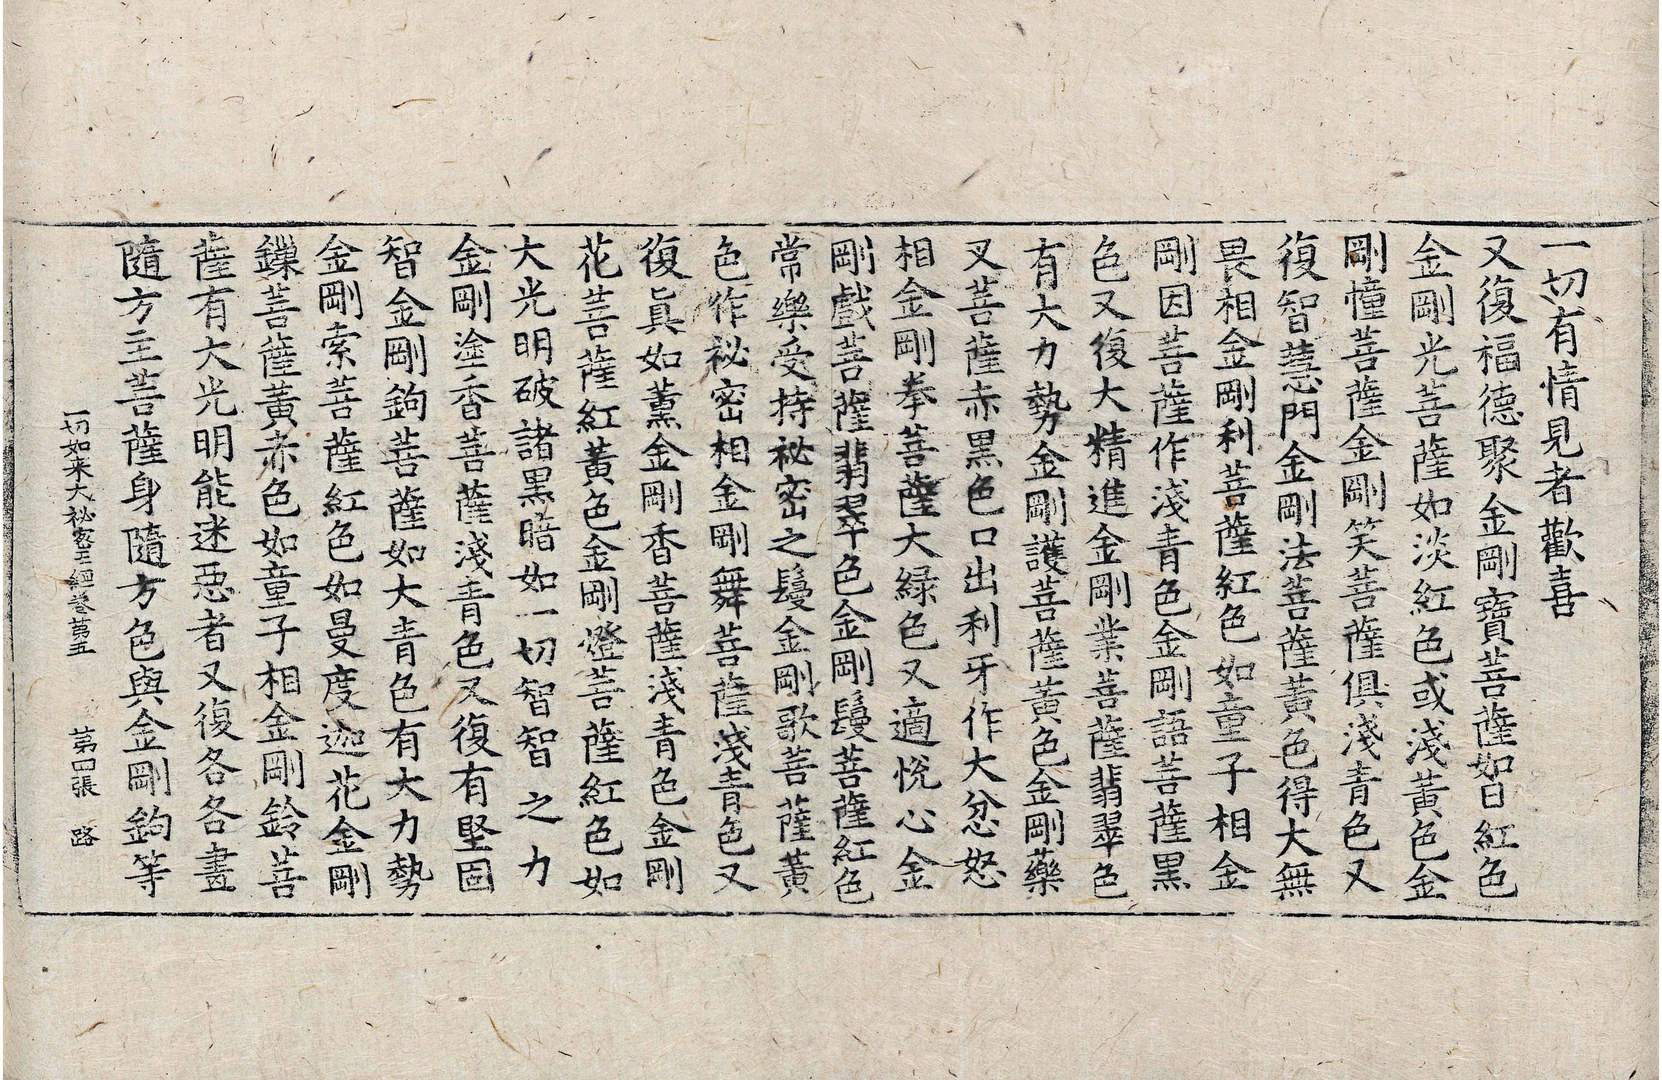 一切有情見者歡喜
又復福德聚金剛寶菩薩如日紅色
金剛光菩薩如淡紅色或淺黃色金
剛幢菩薩金剛笑菩薩俱淺青色又
復智慧門金剛法菩薩黃色得大無
畏相金剛利菩薩紅色如童子相金
剛因菩薩作淺青色金剛語菩薩黑
色又復大精進金剛業菩薩翡翠色
有大力勢金剛護菩薩黃色金剛藥
叉菩薩赤黑色口出利牙作大忿怒
相金剛拳菩薩大綠色又適悅心金
剛戲菩薩翡翠色金剛鬘菩薩紅色
常樂受持祕密之鬘金剛歌菩薩黃
色作祕密相金剛舞菩薩淺青色又
復眞如薰金剛香菩薩淺青色金剛
花菩薩紅黃色金剛燈菩薩紅色如
大光明破諸黑暗如一切智智之力
金剛塗香菩薩淺青色又復有堅固
智金剛鉤菩薩如大青色有大力勢
金剛索菩薩紅色如曼度迦花金剛
鏁菩薩黃赤色如童子相金剛鈴菩
薩有大光明能迷惡者又復各各畫
隨方主菩薩身隨方色與金剛鉤等
一切如来大祕密王經卷苐五 苐四張 路